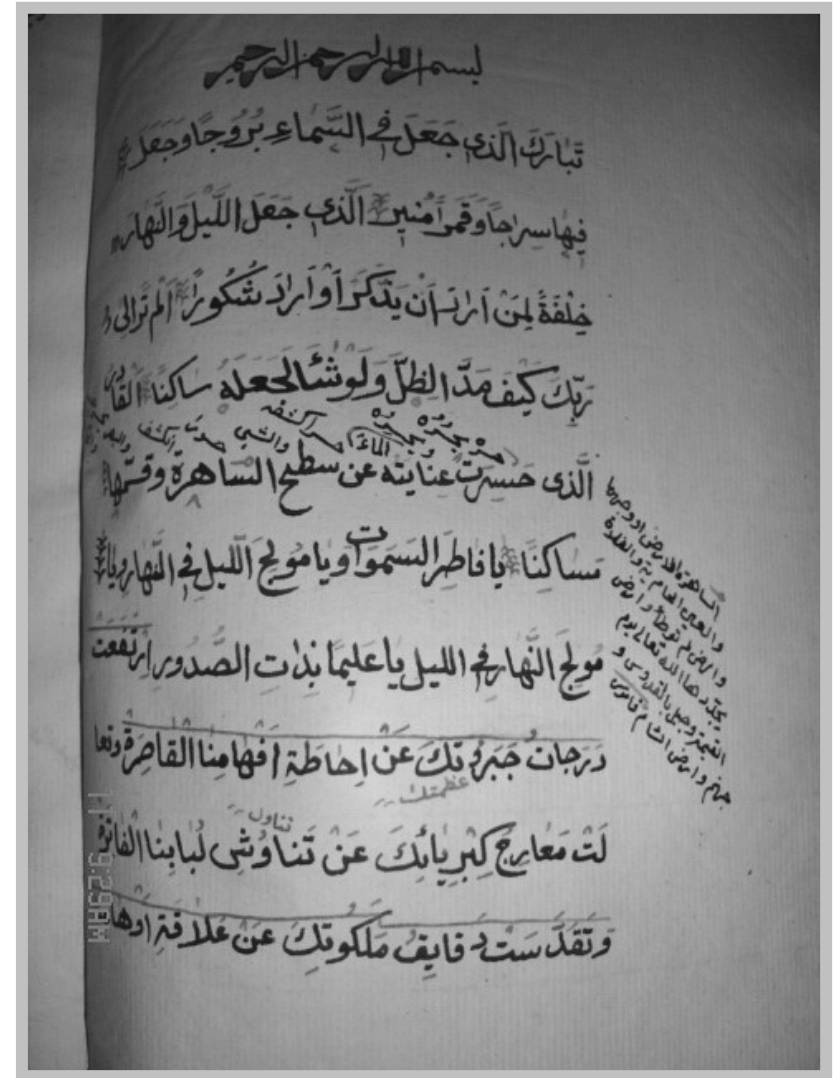 بسم الله الرحمن الرحيم
تَبارَكَ الَّذي جَعَلَ فِي السَّماءِ بُرُوجًا وَجَعَلَ
فِيها سِراجًا وَقَمَرًا مُنيرًا الَّذي جَعَلَ اللَّيلَ وَالنَّهارَ
خِلْفَةً لِمَنْ اَرادَ اَنْ يَذَّكَرَ اَوْ اَرادَ شُكُورًا اَلَمْ تَرَ اِلى
رَبِّكَ كَيْفَ مَدَّ الظِّلَّ وَلَوْ شَئَا لَجَعَلَهُ ساكِنًا القادر
الَّذى حَسَرَت عِنايَتُه عَن سَطيح السّاهِرَة وَقَسَّمَها
مَساكِنًا يا فاطِرَ السَمَواتِ وَيا مُولِجَ اللَّيلِ فِي النَّهارِ وَيا
مُولِجَ النَّهارِ فِي الليلِ يا عَليمًا بِذاتِ الصُّدُورِ اِرْتَفَعَت
دَرَجاتُ جَبَرُوتِكَ عَنْ اِحاطَةِ اَفْهامِنا القاصِرَة وَتَعا
عظمتك
تناول
لَتْ مَعارِجُ كِبْرِيائِكَ عَنْ تَناوُشِ لُبابِنا الفاترة
وَتَقَدَّسَتْ دَقايِقُ مَلَكُوتِكَ عَنْ عَلاقَةِ اَوْها
الساهرة الارض او وجهها
والفلاة
وارض لم توطأ وارض
يجددها الله تعالى يوم
القيمة وجبل بالقدس و
جهنم وارض الشام قاموس
11 9:29AM